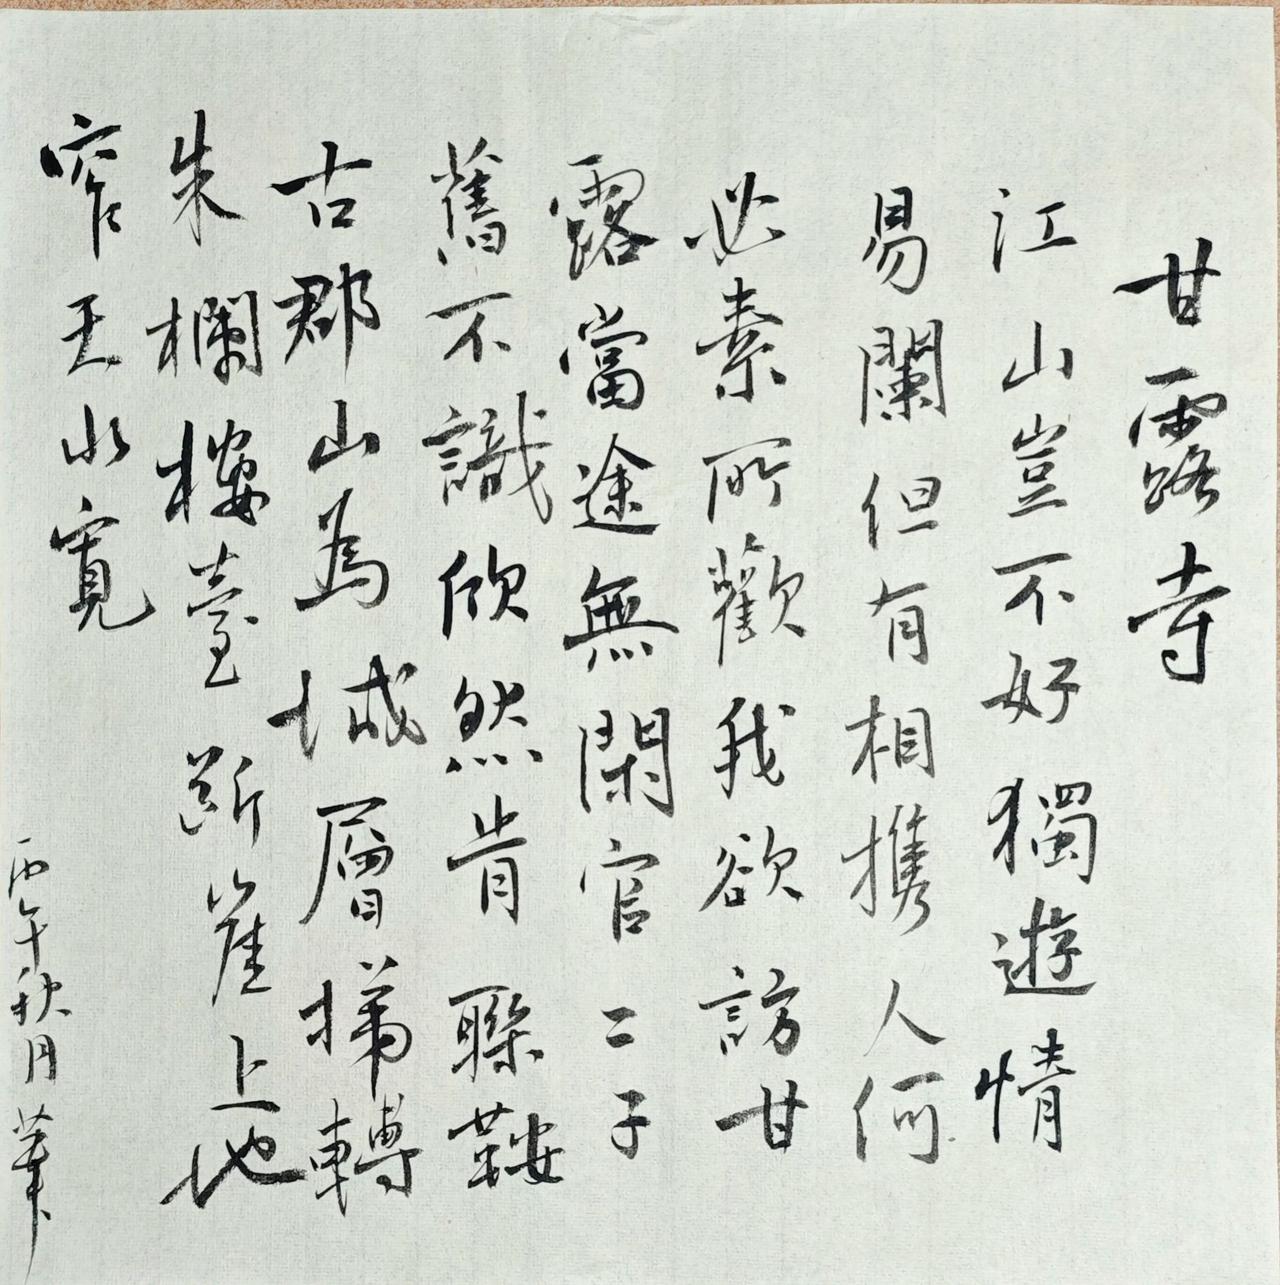 甘露寺
江山豈不好獨遊情
易闌但有相攜人何
必素所歡我欲訪甘
露當途無閑官二子
舊不識欣然肯聯鞍
古郡山為城層梯轉
朱欄樓臺斷崖上地
窄天水寬
丙午秋月